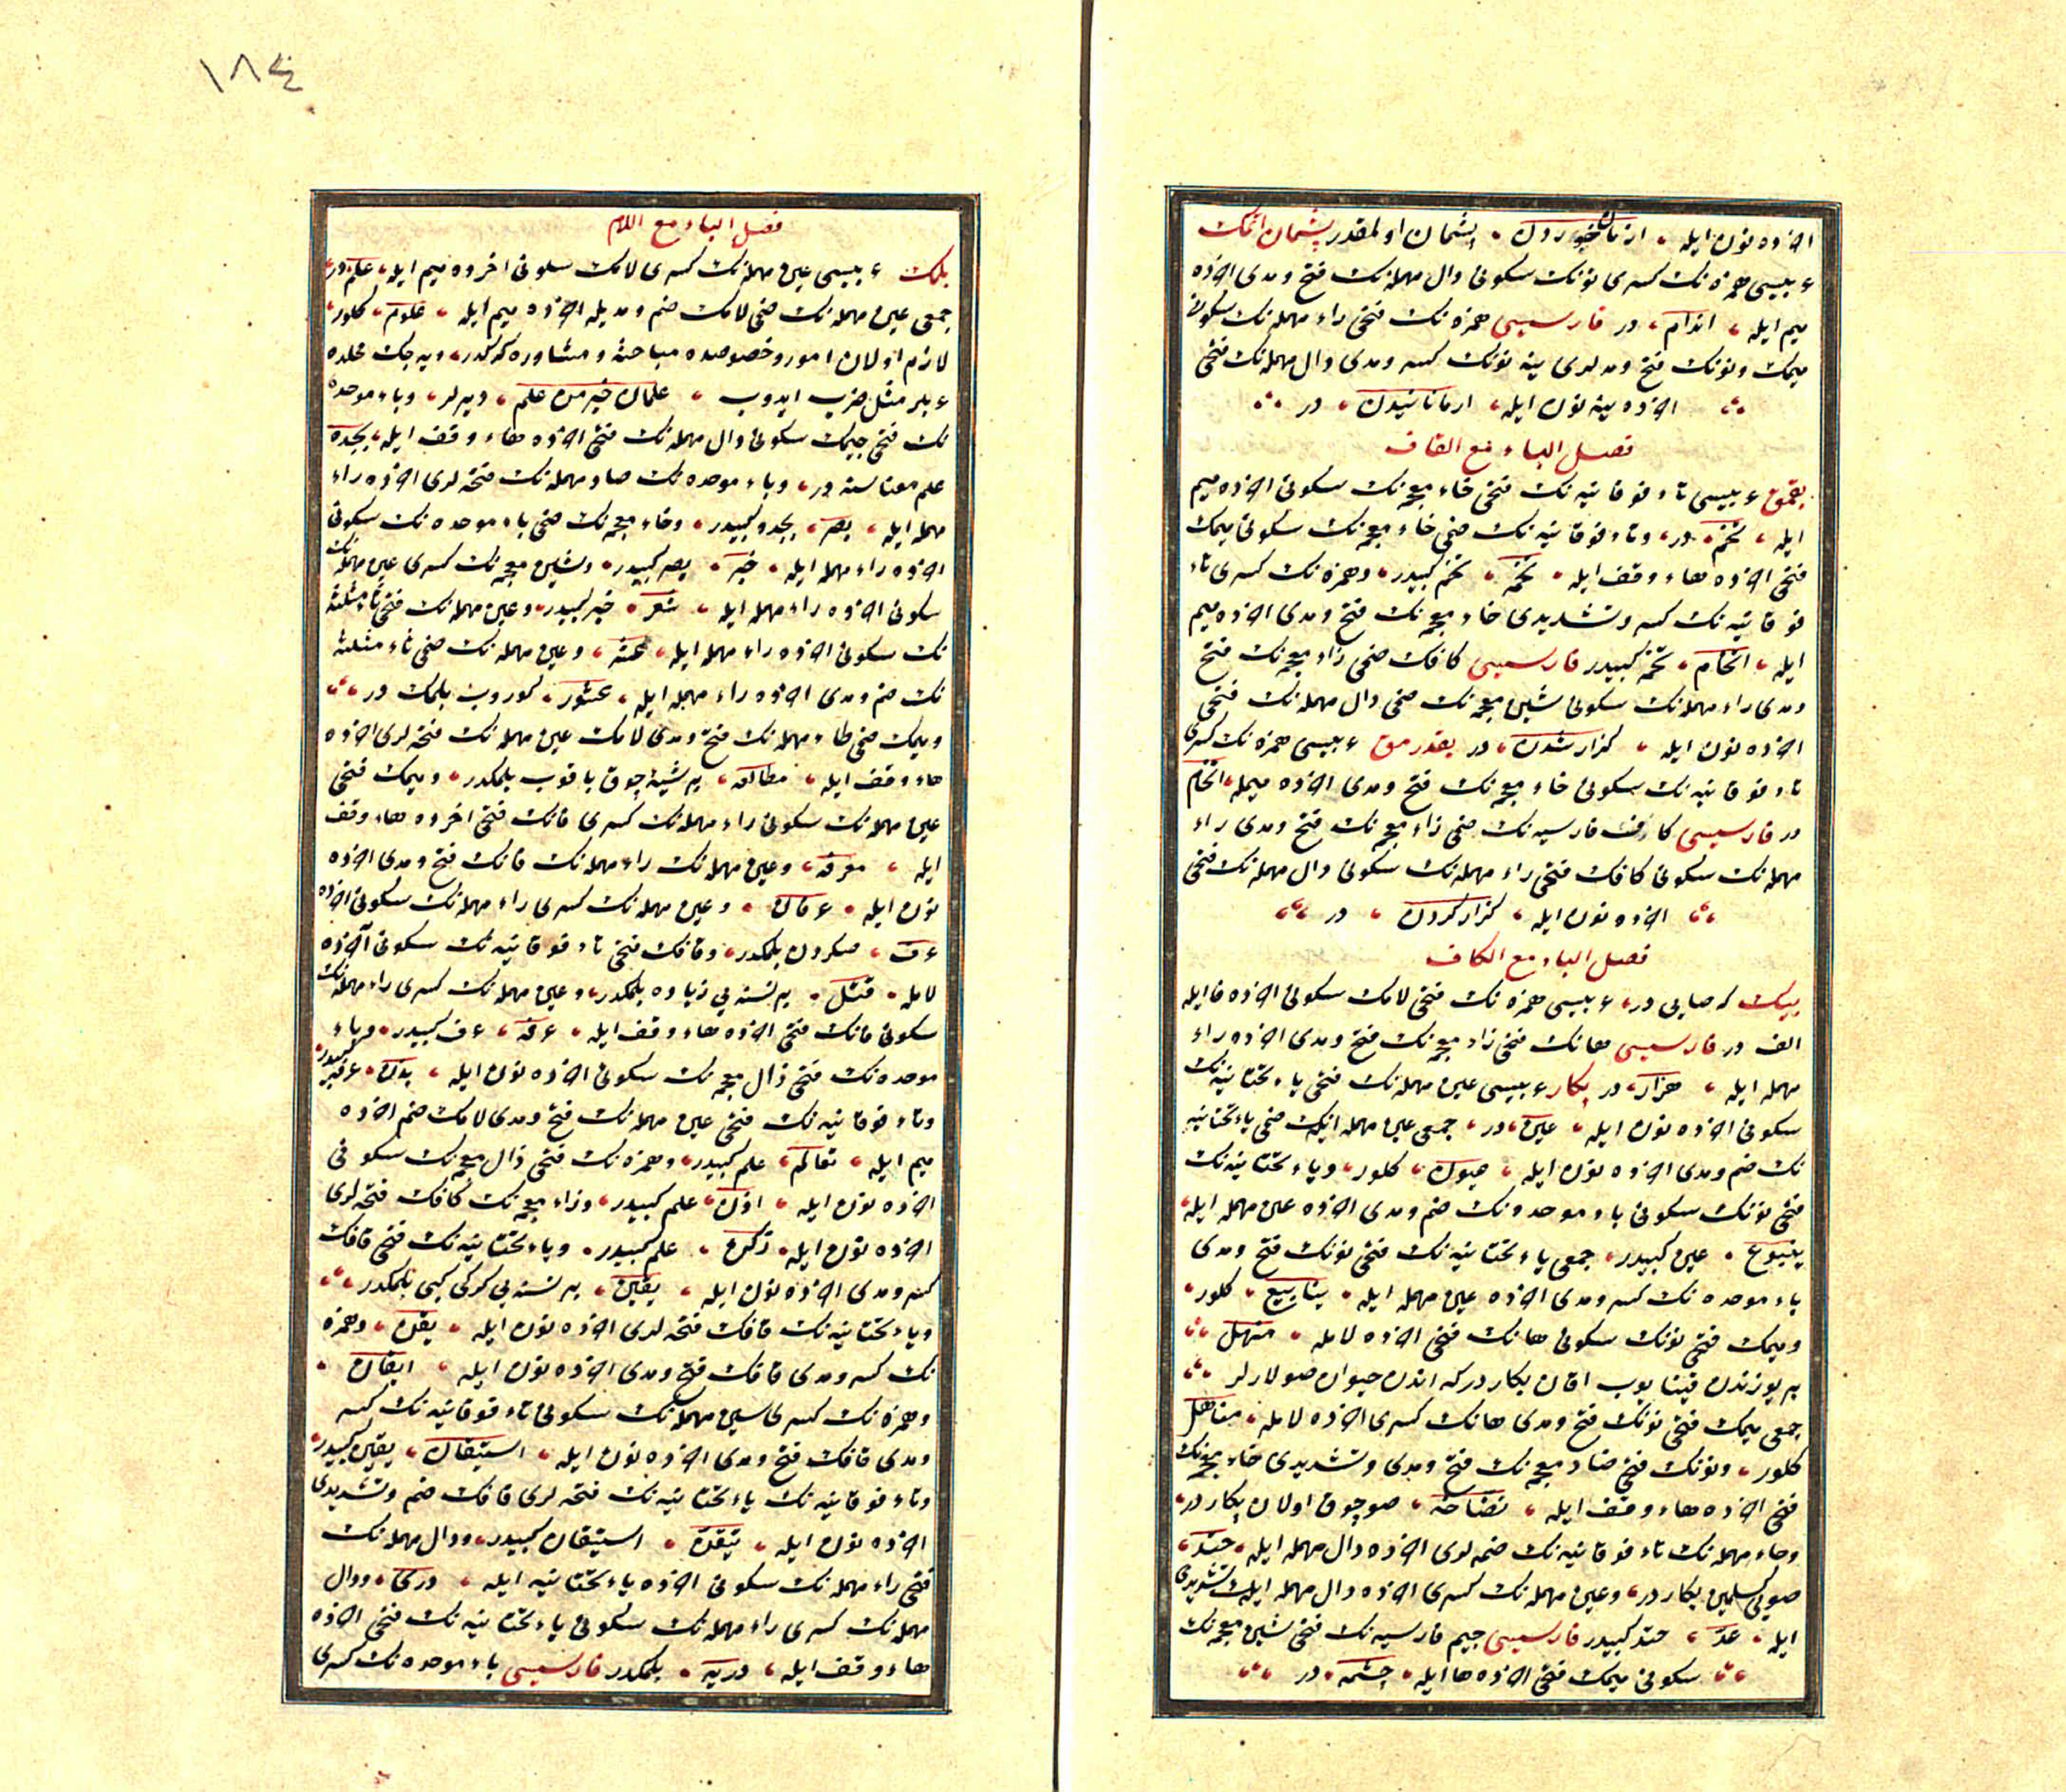 اخرده نون ايله ، ارمان خوردن ، پشمان اولمقدر پشمان اتمك
عربيسى همزه نك كسرى نونك سكونى دال مهمله نك فتح و مدى اخرده
ميم ايله ، اندام ، در فارسيسى همزه نك فتحى راء مهمله نك سكونى
ميمك و نونك فتح و مدلرى ينه نونك كسر و مدى دال مهمله نك فتحى
اخرده ينه نون ايله ، ارمانانيدن ، در
فصل الباء مع القاف
بقمق عربيسى تاء فوقانيه نك فتحى خاء معجمه نك سكونى اخرده ميم
ايله ، تخم ، در ، وتاء فوقانيه نك ضمى خاء معجمه نك سكونى ميمك
فتحى اخرده هاء وقف ايله ، تخمه ، تخم كبيدر ، وهمزه نك كسرى تاء
فوقانيه نك كسر و تشديدى خاء معجمه نك فتح و مدى اخرده ميم
ايله ، اتخام ، تخمه كبيدر فارسيسى كافك ضمى زاء معجمه نك فتح
و مدى راء مهمله نك سكونى شين معجمه نك ضمى دال مهمله نك فتحى
اخرده نون ايله ، كزار شدن ، در بقدرمق عربيسى همزه نك كسرى
تاء فوقانيه نك سكونى خاء معجمه نك فتح و مدى اخرده ميمله ، اتخام
در فارسيسى كاف فارسيه نك ضمى زاء معجمه نك فتح و مدى راء
مهمله نك سكونى كافك فتحى راء مهمله نك سكونى دال مهمله نك فتحى
اخرده نون ايله ، كزار كردن ، در
فصل الباء مع الكاف
بيك كه صايى در ، عربيسى همزه نك فتحى لامك سكونى اخرده فا ايله
الف در فارسيسى هانك فتحى زاء معجمه نك فتح و مدى اخرده راء
مهمله ايله ، هزار ، در بكار عربيسى عين مهمله نك فتحى ياء تحتانيه نك
سكونى اخرده نون ايله ، عين ، در ، جمعى عين مهمله نك ضمى ياء تحتانيه
نك ضم و مدى اخرده نون ايله ، عيون ، كلور ، و ياء تحتانيه نك
فتحى نونك سكونى باء موحده نك ضم و مدى اخرده عين مهمله ايله ،
ينبوع ، عين كبيدر ، جمعى ياء تحتانيه نك فتحى نونك فتح و مدى
باء موحده نك كسر و مدى اخرده عين مهمله ايله ، ينابيع ، كلور ،
و ميمك فتحى نونك سكونى هانك فتحى اخرده لامله ، منهل
بر يوزندن قينايوب اقان بكاردركه اندن حيوان صولارلر
جمعى ميمك فتحى نونك فتح و مدى هانك كسرى اخرده لامله ، مناهل
كلور ، و نونك فتحى ضاد معجمه نك فتح و مدى و تشديدى خاء معجمه نك
فتحى اخرده هاء وقف ايله ، نضاخه ، صو چوق اولان بكاردر ،
وحاء مهمله نك تاء فوقانيه نك ضمه لرى اخرده دال مهمله ايله ، حتد ،
صويى كسلمين بكاردر ، وعين مهمله نك كسرى اخرده دال مهمله نك تشديدى
ايله ، عد ، حتد كبيدر فارسيسى جيم فارسيه نك فتحى شين معجمه نك
سكونى ميمك فتحى اخرده ها ايله ، چشمه ، در
١٨٤
فصل الباء مع اللام
بلمك عربيسى عين مهمله نك كسرى لامك سكونى اخرده ميم ايله ، علم ، در
جمعى عين مهمله نك ضمى لامك ضم و مديله اخرده ميم ايله ، علوم ، كلور ،
لازم اولان امور و خصوصده مباحثه و مشاوره كركدر ، ديه جك محلده
عربلر مثل ضرب ايدوب ، علمان خير من علم ، ديرلر ، و باء موحده
نك فتحى جيمك سكونى دال مهمله نك فتحى اخرده هاء وقف ايله ، بجده
علم معناسنه در ، و باء موحده نك صاد مهمله نك فتحه لرى اخرده راء
مهمله ايله ، بصر ، بجده كبيدر ، وخاء معجمه نك ضمى باء موحده نك سكونى
اخرده راء مهمله ايله ، خبر ، بصر كبيدر ، وشين معجمه نك كسرى عين مهمله نك
سكونى اخرده راء مهمله ايله ، شعر ، خبر كبيدر ، وعين مهمله نك فتحى ثاء مثلثه
نك سكونى اخرده راء مهمله ايله ، عثر ، وعين مهمله نك ضمى ثاء مثلثه
نك ضم و مدى اخرده راء مهمله ايله ، عثور ، كوروب بلمك در
و ميمك ضمى طاء مهمله نك فتح و مدى لامك عين مهمله نك فتحه لرى اخرده
هاء وقف ايله ، مطالعه ، بر شيئه چوق باقوب بلمكدر ، و ميمك فتحى
عين مهمله نك سكونى راء مهمله نك كسرى فانك فتحى اخرده هاء وقف
ايله ، معرفه ، وعين مهمله نك راء مهمله نك فانك فتح و مدى اخرده
نون ايله ، عرفان ، وعين مهمله نك كسرى راء مهمله نك سكونى اخرده
عرف ، صكردن بلمكدر ، وقافك فتحى تاء فوقانيه نك سكونى اخرده
لامله ، قتل ، بر نسنه يى زياده بلمكدر ، وعين مهمله نك كسرى راء مهمله نك
سكونى فانك فتحى اخرده هاء وقف ايله ، عرفه ، عرف كبيدر ، و باء
موحده نك فتحى ذال معجمه نك سكونى اخرده نون ايله ، بذن ، عرفه كبيدر
وتاء فوقانيه نك فتحى عين مهمله نك فتح و مدى لامك ضم اخرده
ميم ايله ، تعالم ، علم كبيدر ، وهمزه نك فتحى ذال معجمه نك سكونى
اخرده نون ايله ، اذن ، علم كبيدر ، وزاء معجمه نك كافك فتحه لرى
اخرده نون ايله ، زكن ، علم كبيدر ، و ياء تحتانيه نك فتحى قافك
كسر و مدى اخرده نون ايله ، يقين ، بر نسنه يى كركى كبى بلمكدر
و ياء تحتانيه نك قافك فتحه لرى اخرده نون ايله ، يقن ، وهمزه
نك كسر و مدى قافك فتح و مدى اخرده نون ايله ، ايقان ،
وهمزه نك كسرى سين مهمله نك سكونى تاء فوقانيه نك كسر
و مدى قافك فتح و مدى اخرده نون ايله ، استيقان ، يقين كبيدر ،
وتاء فوقانيه نك ياء تحتانيه نك فتحه لرى قافك ضم و تشديدى
اخرده نون ايله ، تيقن ، استيقان كبيدر ، ودال مهمله نك
فتحى راء مهمله نك سكونى اخرده ياء تحتانيه ايله ، درى ، ودال
مهمله نك كسرى راء مهمله نك سكونى ياء تحتانيه نك فتحى اخرده
هاء وقف ايله ، دريه ، بلمكدر فارسيسى باء موحده نك كسرى